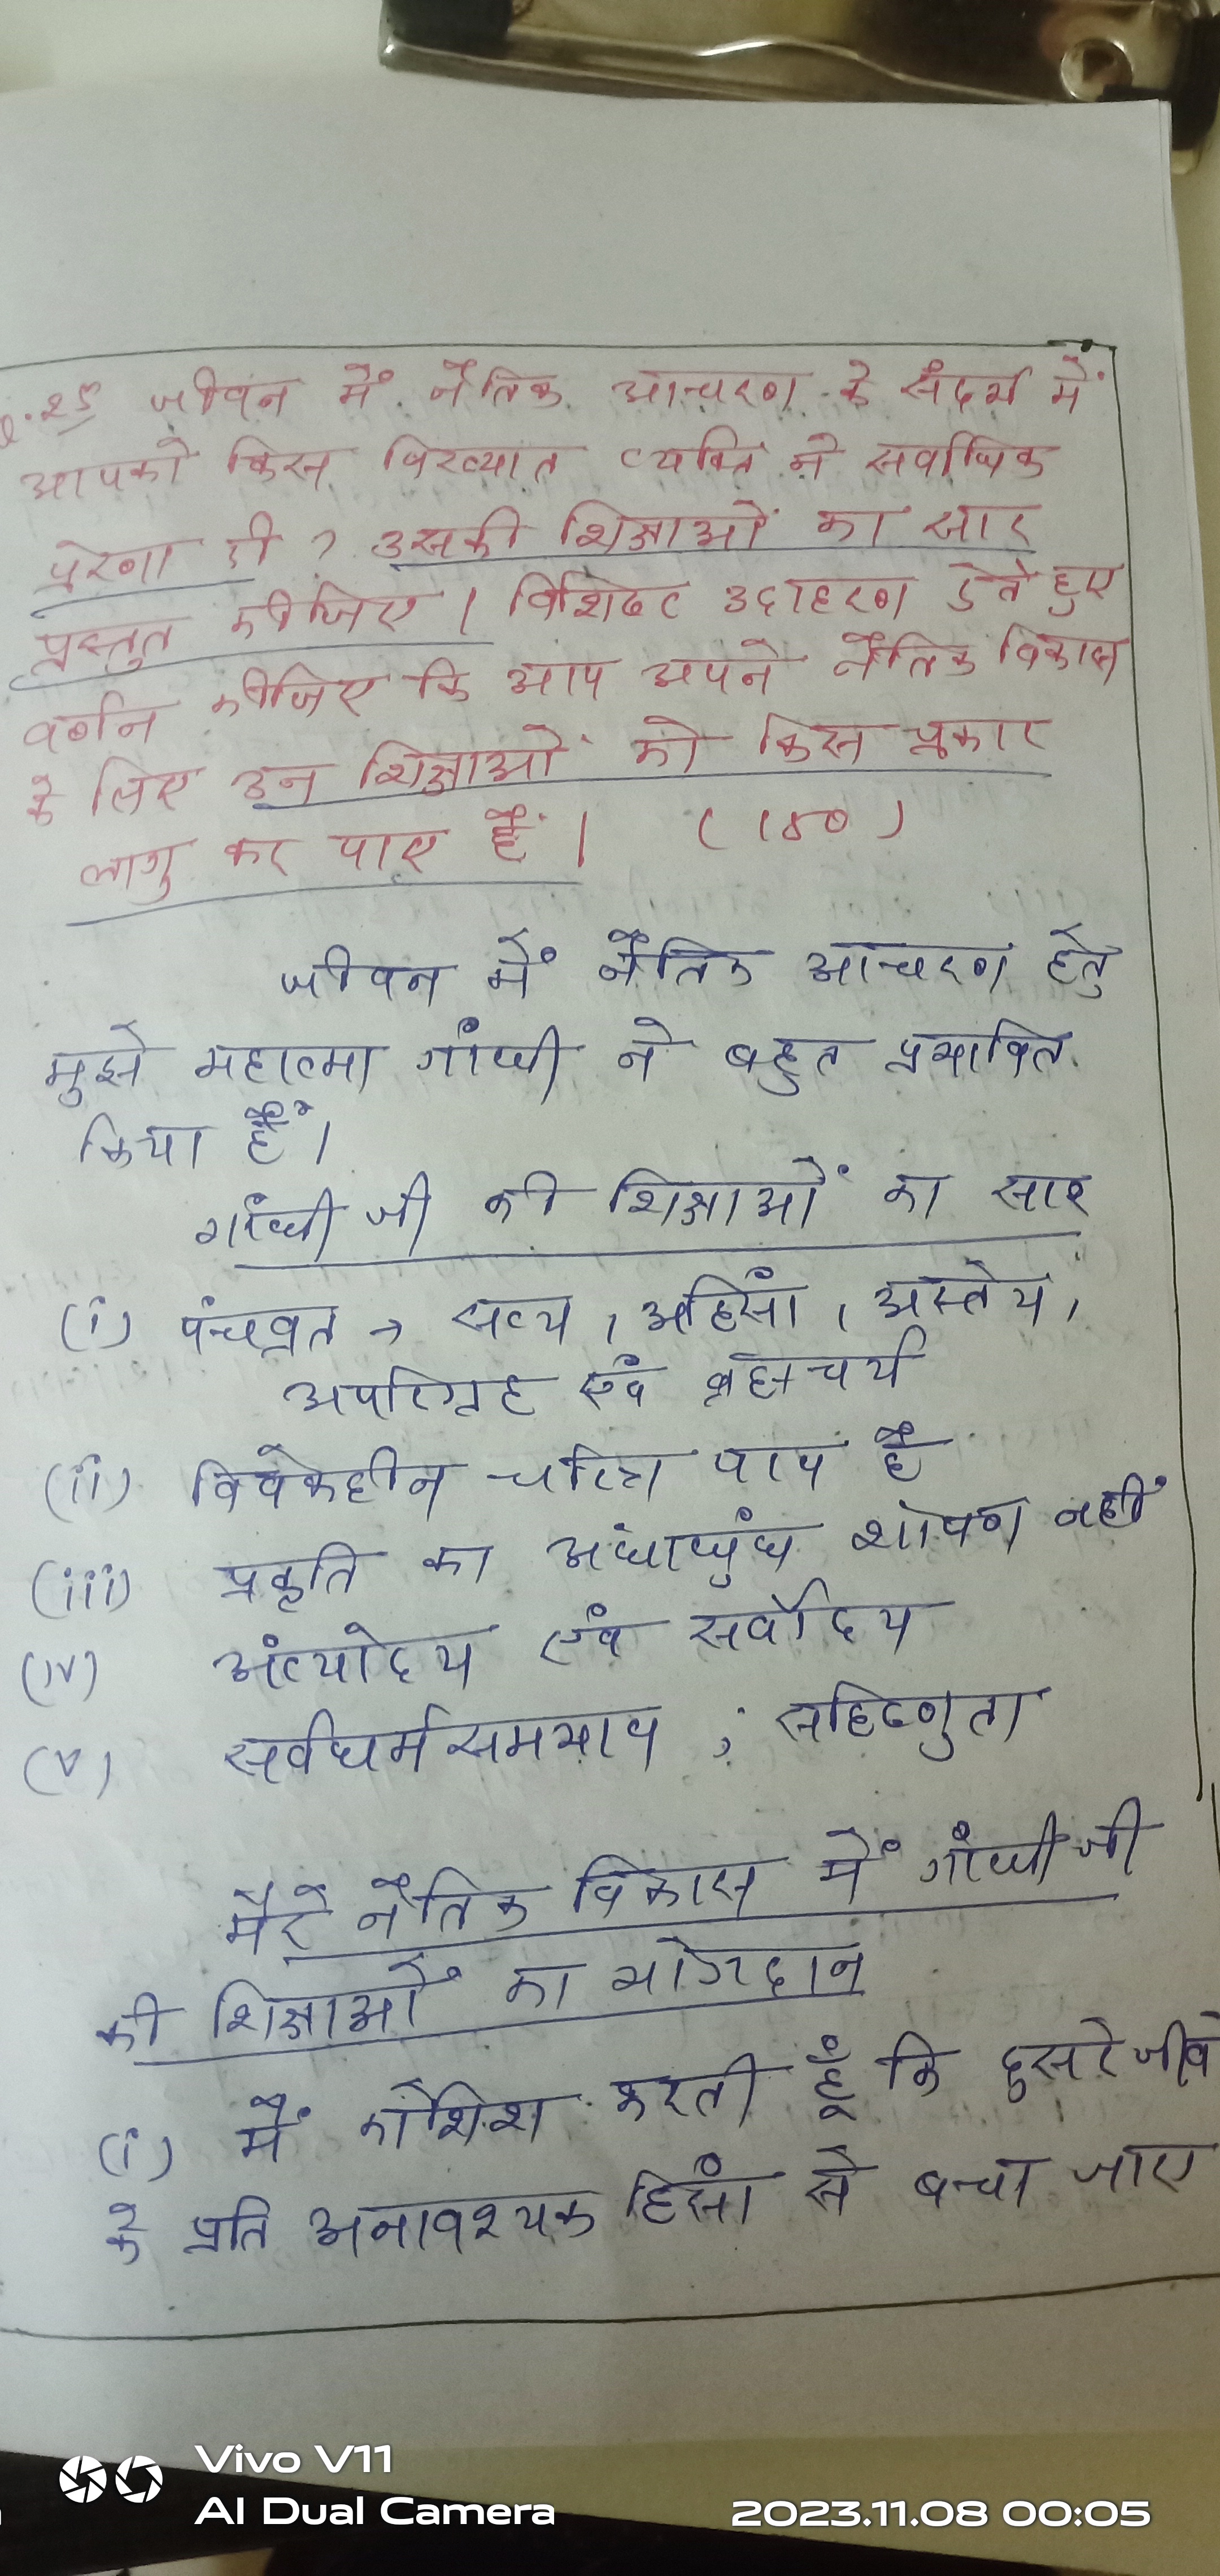 Q.25 जीवन में नैतिक आचरण के संदर्भ में
आपको किस विख्यात व्यक्ति ने सर्वाधिक
प्रेरणा दी ? उसकी शिक्षाओं का सार
प्रस्तुत कीजिए । विशिष्ट उदाहरण देते हुए
वर्णन कीजिए कि आप अपने नैतिक विकास
के लिए उन शिक्षाओं को किस प्रकार
लागु कर पाए हैं । (150)
जीवन में नैतिक आचरण हेतु
मुझे महात्मा गांधी ने बहुत प्रभावित
किया हैं।
गाँधी जी की शिक्षाओं का सार
(i) पंचव्रत → सत्य, अहिंसा, अस्तेय,
अपरिग्रह एवं ब्रह्मचर्य
(ii) विवेकहीन चरित्र पाप है
(iii) प्रकृति का अंधाधुंध शोषण नहीं
(iv) अंत्योदय एवं सर्वोदय
(v) सर्वधर्मसमभाव ; सहिष्णुता
मेरे नैतिक विकास में गांधी जी
की शिक्षाओं का योगदान
(i) मैं कोशिश करती हूँ कि दुसरे जीवो
के प्रति अनावश्यक हिंसा से बचा जाए
Vivo V11
AI Dual Camera
2023.11.08 00:05